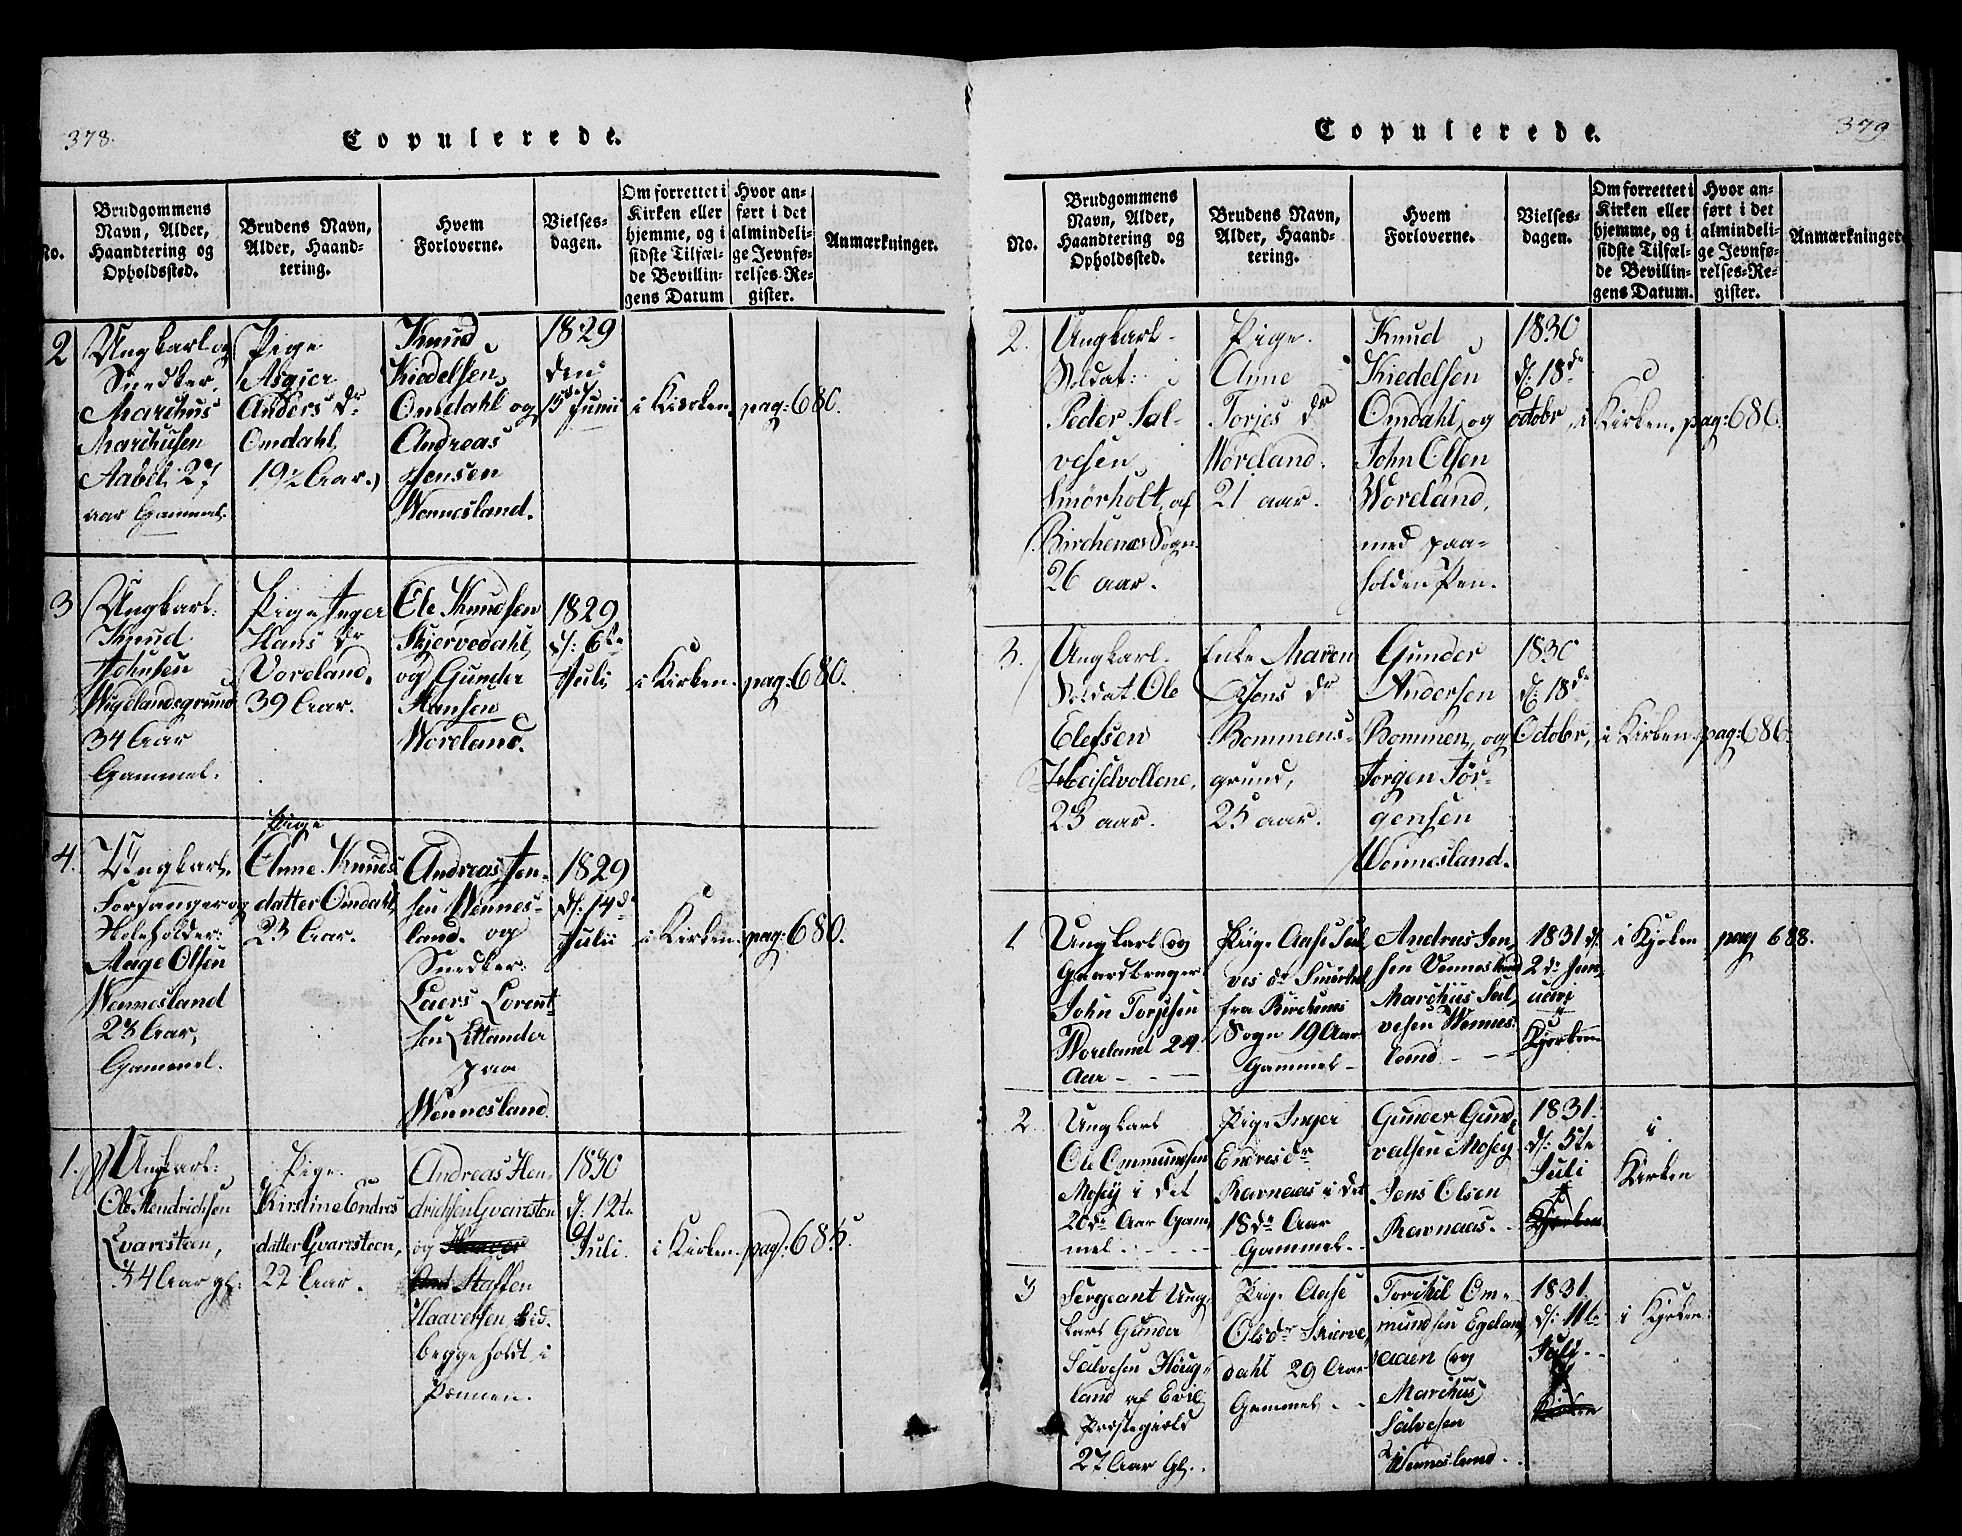 378.
Copulerede.
No.
Brudgommens
Navn, Alder,
Haandtering og
Opholdssted.
Brudens Navn,
Alder, Haand-
tering.
Hvem
Forloverne.
Vielses-
dagen.
Om forrettet i
Kirken eller
hjemme, og i
sidste Tilfæl-
de Bevillin-
gens Datum
Hvor an-
ført i det
almindeli-
ge Jevnfø-
relses-Re-
gister.
Anmærkninger.
2
Ungkarl og
Snedker
Marchus
Marchusen
Aabel: 27
aar Gammel.
Pige
Asgier
Anders dr
Omdahl,
19½ Aar.
Knud
Kiedelsen
Omdahl og
Andreas
Jensen
Wennesland.
1829
den
15de Junii
i Kirken.
pag: 680.
3
Ungkarl.
Knud
Johnsen
Wigelandsgrund
34 Aar
Gammel.
Pige Inger
Hans dr
Voreland.
39 Aar.
Ole Knudsen
Skjervedahl,
og Gunder
Hansen
Woreland.
1829
d: 6te
Julii
i Kirken.
pag: 680.
4.
Ungkarl.
Forsanger og
Skoleholder:
Aage Olsen
Wennesland
23 Aar,
Gammel.
Pige
Anne Knuds
datter Omdahl,
23 Aar.
Andreas Jen-
sen Wennes-
land. og
Snedker
Laers Lorent-
sen
paa
Wennesland.
1829
d: 14de
Julii
i Kirken.
pag: 680.
1.
Ungkarl:
Ole Hendrichsen
Qvaresteen,
34 Aar gl:
Pige.
Kirstine Endres
datter Qvaresteen,
22 Aar.
Andreas Hen-
drichsen Qvaresten
og
Staffen
Haavorsen
begge holdt i
Pennen.
1830
d: 12te
Juli.
i Kirken.
pag: 685.
379
Copulerede.
No.
Brudgommens
Navn, Alder,
Haandtering og
Opholdssted.
Brudens Navn,
Alder, Haand-
tering.
Hvem
Forloverne.
Vielses-
dagen.
Om forrettet i
Kirken eller
hjemme, og i
sidste Tilfæl-
de Bevillin-
gens Datum.
Hvor an-
ført i det
almindeli-
ge Jevnfø-
relses-Re-
gister.
Anmærkninger.
2.
Ungkarl-
Soldat:
Peder Sal-
vesen
Smörholt, af
Birchenæs Sogn.
26 aar.
Pige.
Anne
Torjes dr
Woreland.
21 aar.
Knud
Kiedelsen
Omdahl, og
John Olsen
Woreland,
med paa-
holden Pen.
1830
d: 18de
octobr,
i Kirken.
pag: 686.
3.
Ungkarl.
Soldat. Ole
Elefsen
Heiselvollene,
23 aar.
Enke Maren
Jens dr
Bommens-
grund,
25 aar.
Gunder
Andersen
Bommen, og
Jorgen Jör-
gensen
Wennesland.
1830
d: 18de
Octobr,
i Kirken.
pag: 686.
1.
Ungkarl og
Gaardbruger
John Torjesen
Woreland 24
Aar - - -
Pige Aase Sal
ves dr Smörholt
fra Birchenes
Sogn 19 Aar
Gammel -
Andreas Jen-
sen Vennesland
Marchus Sal-
vesen Vennes-
land - -
1831 d:
2de Jan-
uari
i Kjrken
pag 688.
2
Ungkarl
Ole Ommundsen
Mosey i det
20de Aar Gam-
mel - - - -
Pige Inger
Endresdr
Ravnaas i det
18de Aar
Gammel.
Gunder Gund-
valsen Mosey
Jens Olsen
Ravnaas.
1831.
d: 5te
Juli
i
Kirken
3
Sergeant Ung-
karl Gunder
Salvesen Höug-
land af Evie
Prestegield
27 Aar Gl.
Pige Aase
Olsdr Skierve,
dahl 29 Aar
Gammel - -
Torchel Om-
mundsen Egeland,
og
Marchus
Salvesen
Wennesland
1831.
d: 11te
Juli
i Kjrken.